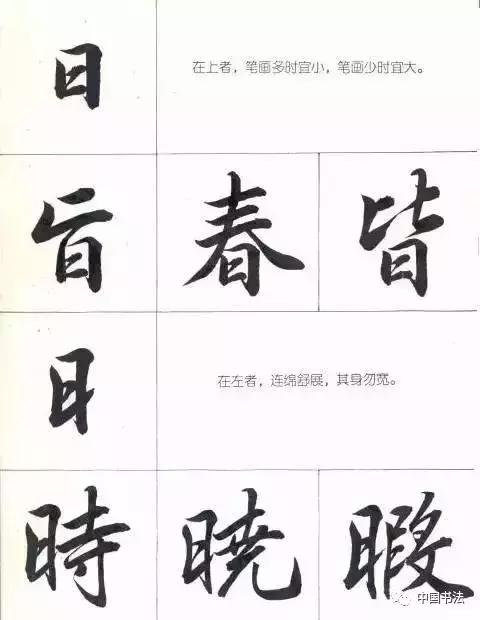 日
在上者，笔画多时宜小，笔画少时宜大。
旨 春 皆
日
在左者，连绵舒展，其身勿宽。
時 暁 暇
中国书法